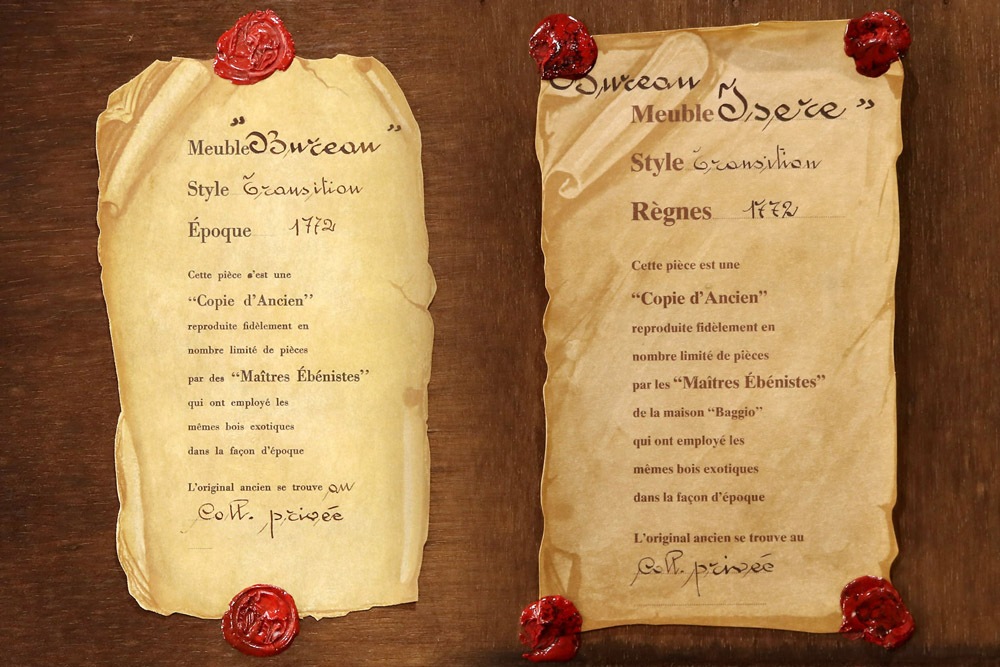 Meuble "Bureau"
Style Transition
Époque 1772
Cette pièce s'est une
“Copie d’Ancien”
reproduite fidèlement en
nombre limité de pièces
par des “Maîtres Ébénistes”
qui ont employé les
mêmes bois exotiques
dans la façon d’époque
L’original ancien se trouve au
Coll. privée
Bureau
Meuble Isere”
Style Transition
Règnes 1772
Cette pièce est une
“Copie d’Ancien”
reproduite fidèlement en
nombre limité de pièces
par les “Maîtres Ébénistes”
de la maison “Baggio”
qui ont employé les
mêmes bois exotiques
dans la façon d’époque
L’original ancien se trouve au
Coll. privée